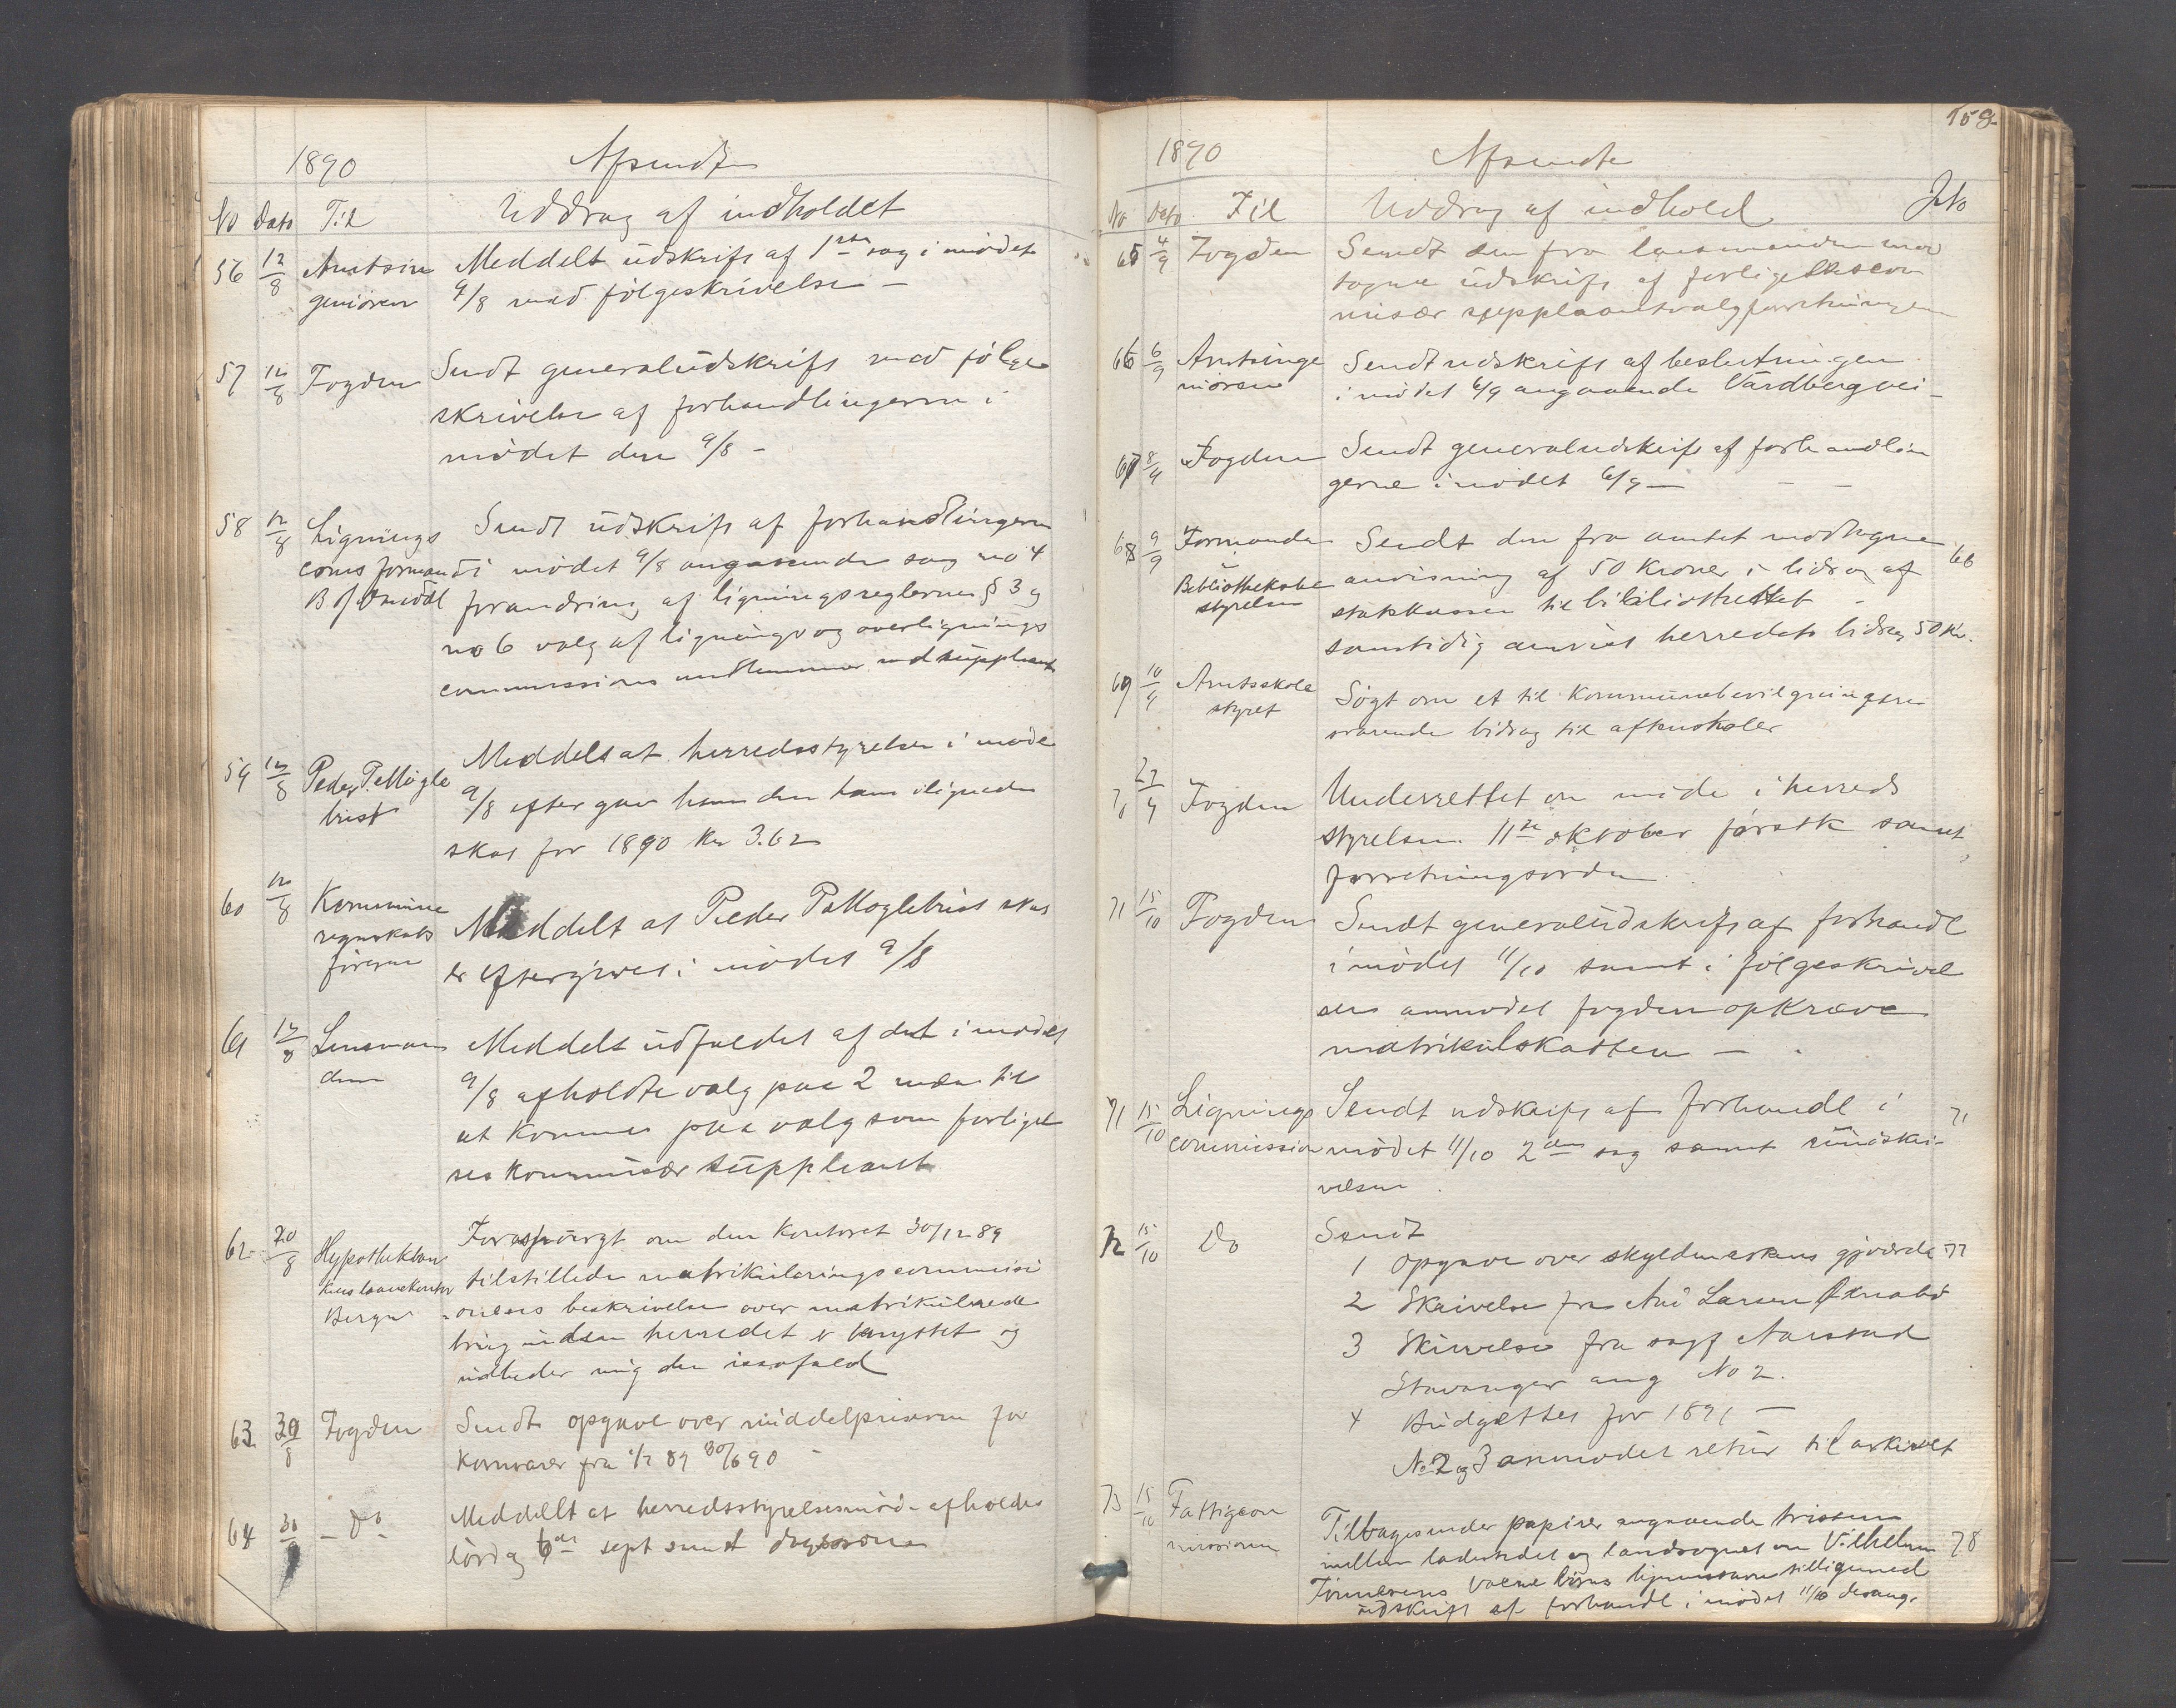 1890 Afsendte
No Dato Til Uddrag af indholdet
56 12/8 Amtsin Meddelt udskrift af 1ste sag i mødet
geniøren 9/8 med følgeskrivelse –
57 12/8 Fogden Sendt generaludskrift med følge
skrivelse af forhandlingerne i
mødet den 9/8 –
58 12/8 Lignings Sendt udskrift af forhandlingerne
coms formand i mødet 9/8 angaaende sag no 4
forandring af ligningsreglernes § 3 og
no 6 valg af lignings og overlignings
commissions medlemmer med suppleant
59 12/8 Peder P. Mogle Meddelt at herredsstyrelsen i møde
trist 9/8 eftergav ham den ham ilignede
skat for 1890 Kr 3.62
60 12/8 Kommune Meddelt at Peder P Mogletrist skat
regnskabs er eftergivet i mødet 9/8
føreren
61 12/8 Lensman Meddelt udfaldet af det i mødet
den 9/8 afholdte valg paa 2 mæn til
at komme paa valg som forligel
ses kommisær suppleant
62 20/8 Hypothekban Forespørgt om den kontoret 30/12 89
kens laanekontor tilstillede matrikuleringscommisi
Bergen onens beskrivelse over matrikulerede
brug inden herredet er benyttet og
udbeder mig den isaafald
63 30/8 Fogden Sendt opgave over middelpriserne for
Kornvarer fra 1/7 89 30/6 90 –
64 30/8 – Do – Meddelt at herredsstyrelsesmøde afholdes
lørdag 6te sept samt dagsorden
159
1890 Afsendte
No Dato Til Uddrag af indhold JNo
65 4/9 Fogden Sendt den fra lensmanden mod
tagne udskrift af forligelsescom
misær suppleantvalgforretningen
66 6/9 Amtsinge Sendt udskrift af beslutningen
niøren i mødet 6/9 angaaende Vardbergvei –
67 8/9 Fogden Sendt generaludskrift af forhandlin
gerne i mødet 6/9 –
68 9/9 Formanden Sendt den fra amtet modtagne 66
Bibliotheksbe anvisning af 50 Kroner i bidrag af
styrelsen statskassen til bibliotheket –
samtidig anvist herredets bidrag 50 Kr.
69 10/9 Amtsskole Søgt om et til kommunebevilgningen
styret svarende bidrag til aftenskoler
70 27/9 Fogden Underrettet om møde i herreds
styrelsen 11te oktober førstk samt
forretningsorden
71 15/10 Fogden Sendt generaludskrift af forhandl
i mødet 11/10 samt i følgeskrivel
sen anmodet fogden opkræve
matrikulskatten –
71 15/10 Lignings Sendt udskrift af forhandl i 71
commission mødet 11/10 2den sag samt rundskri-
velsen
72 15/10 Do Sendt
1 opgave over skyldmarkens gjværde 77
2 Skrivelse fra And Larsen
3 Skrivelse fra sagf Aarstad
Stavanger ang No 2.
4 Budgettet for 1891 –
No 2 og 3 anmodet retur til arkivet
73 15/10 Fattigcom Tilbagesender papirer angaaende tvisten
missionen mellem ladestedet og landsognet om Vilhelm 78
Tønnesens børns hjemstavn tilligemed
udskrift af forhandl i mødet 11/10 desang.